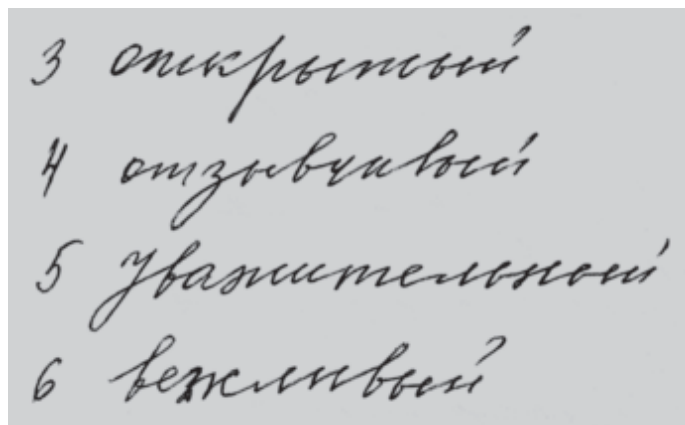 3 открытый
4 отзывчивый
5 уважительный
6 вежливый